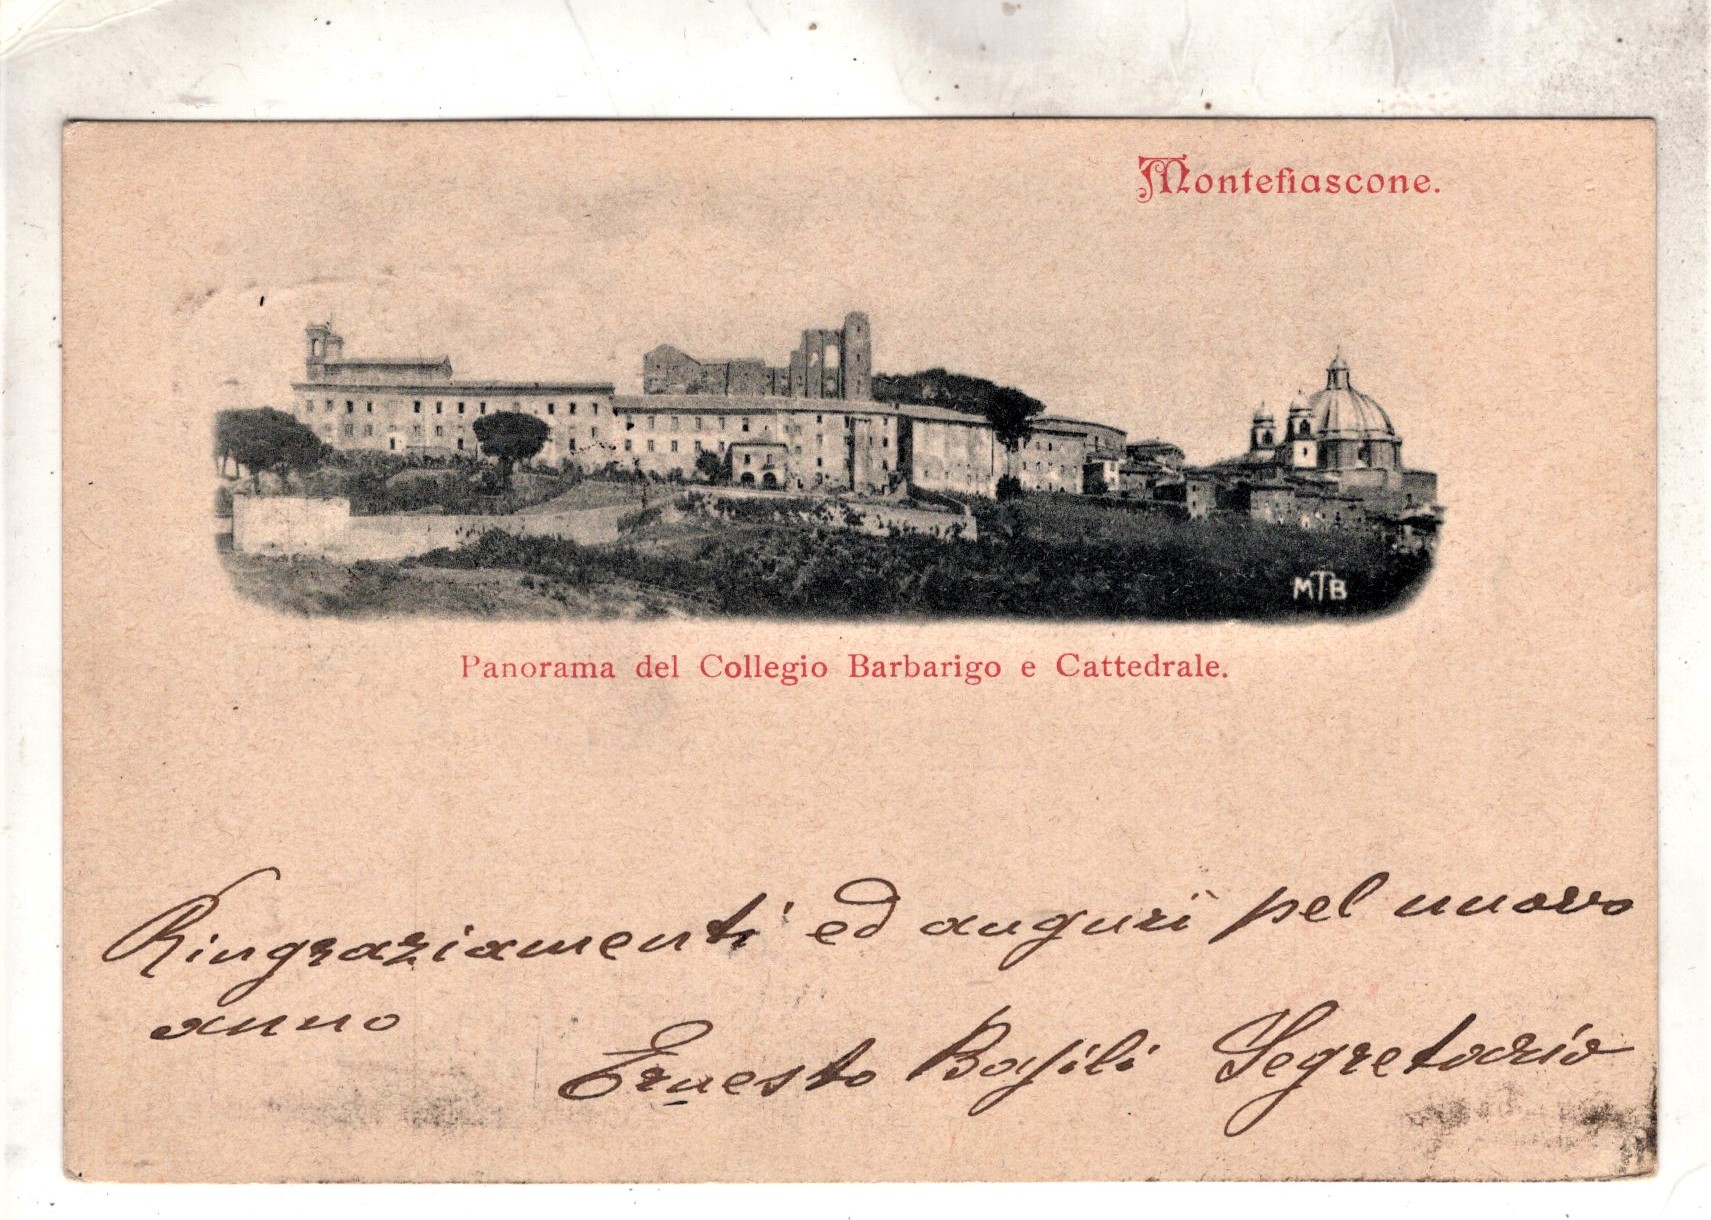 Montefiascone.
MTB
Panorama del Collegio Barbarigo e Cattedrale.
Ringraziamenti ed auguri pel nuovo
anno
Ernesto Basili Segretario